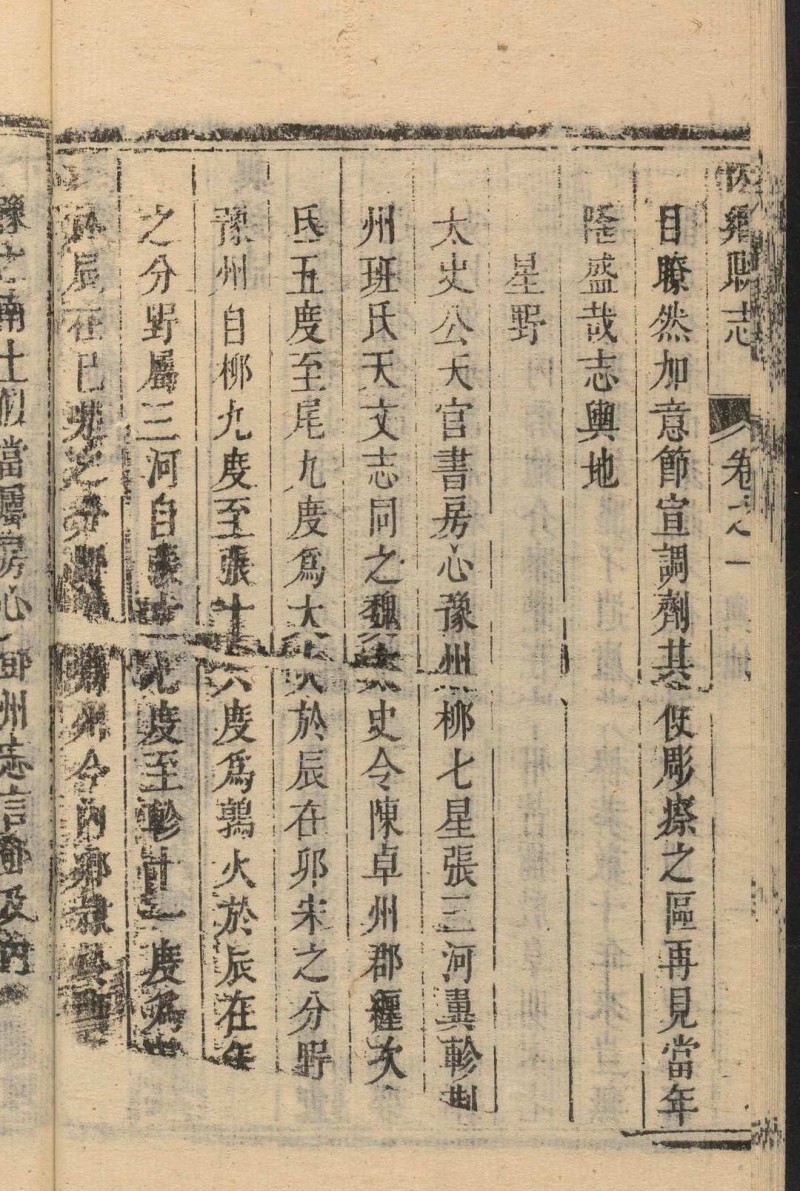 縣志 卷之一
目瞭然加意節宣調劑其伎彫瘵之區再見當年
隆盛哉志輿地
星野
太史公天官書房心豫州柳七星張三河翼軫荆
州班氏天文志同之魏太史令陳卓州郡躔次
氐五度至尾九度爲大火於辰在卯宋之分野
豫州自柳九度至張十六度爲鶉火於辰在午
之分野屬三河自張十七度至軫十一度爲
辰在巳楚之分野 州今内鄉
豫之南土似當屬房心鄧州志言鄧及内